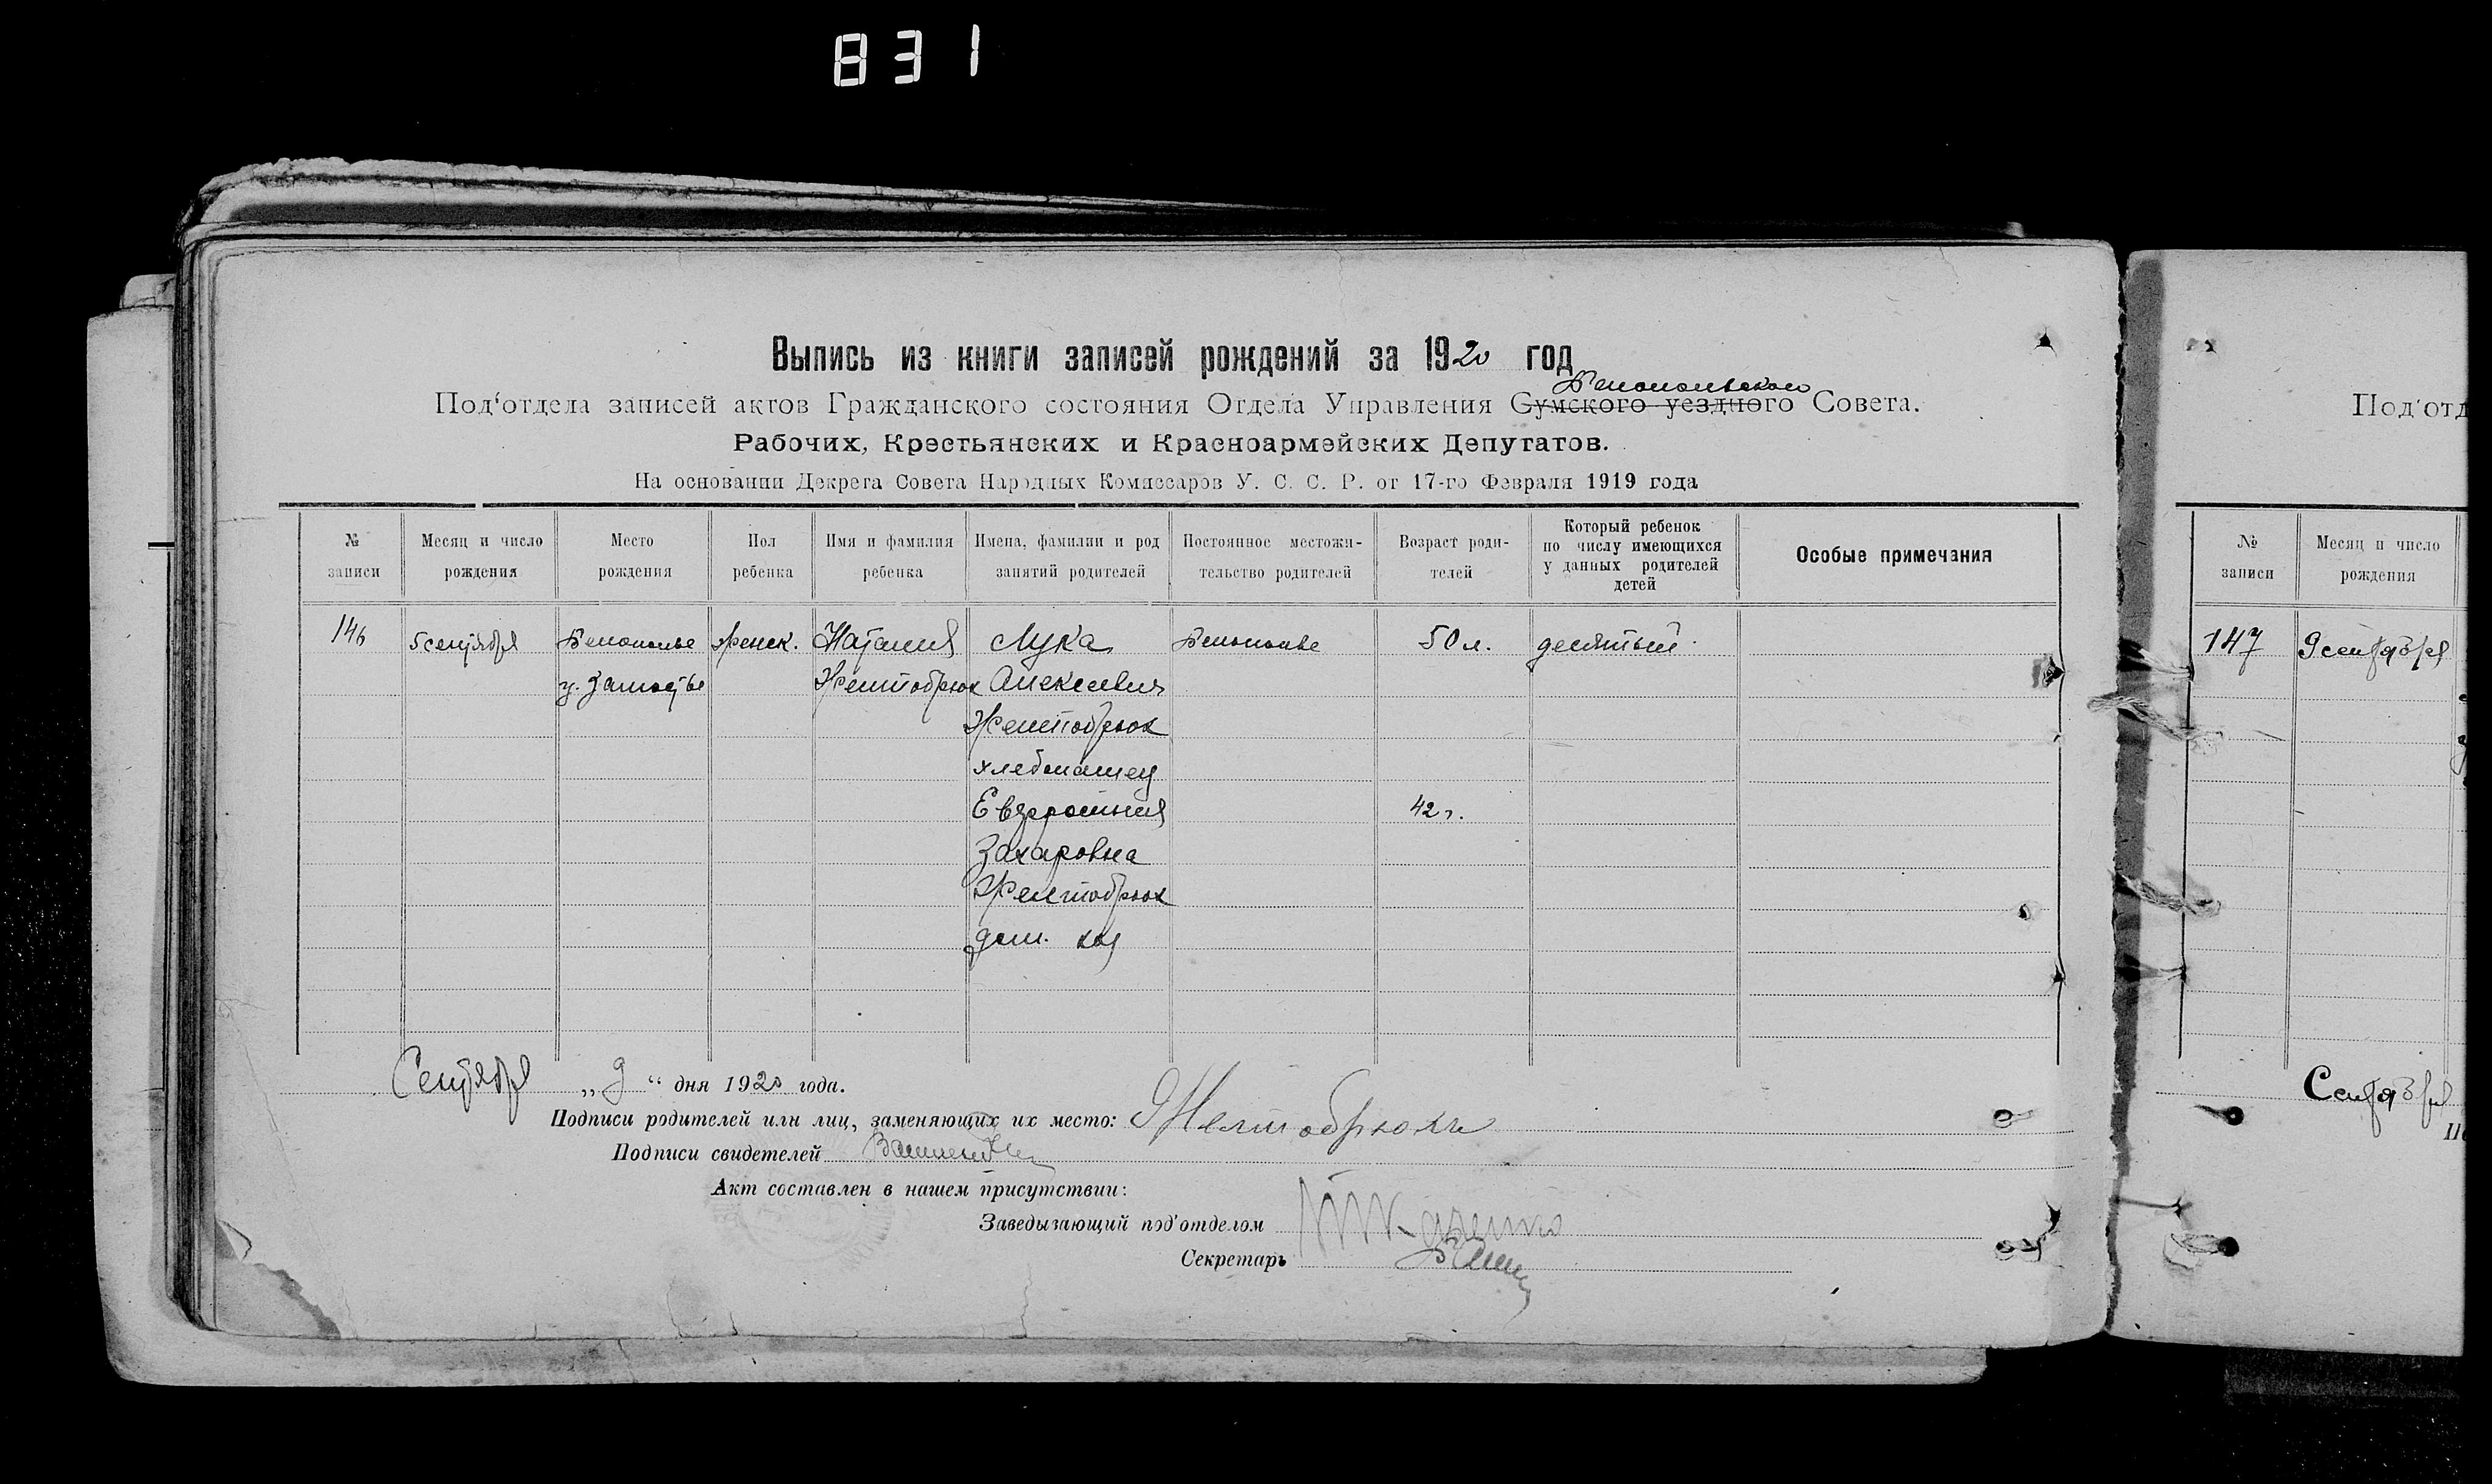 831
Выпись из книги записей рождений за 1920 год
Белопольского
Под'отдела записей актов Гражданского состояния Отдела Управления Сумского уездного Совета.
Рабочих, Крестьянских и Красноармейских Депутатов.
На основании Декрета Совета Народных Комиссаров У. С. С. Р. от 17-го Февраля 1919 года
№ записи
Месяц и число рождения
Место рождения
Пол ребенка
Имя и фамилия ребенка
Имена, фамилии и род занятий родителей
Постоянное местожи-тельство родителей
Возраст роди-телей
Который ребенок по числу имеющихся у данных родителей детей
Особые примечания
146 5 сентября Белополье женск. Наталия Лука Белополье 50 л. десятый
у. Замостье Желтобрюх Алексеевич
Желтобрюх
хлебопашец
Евфросиния 42 г.
Захаровна
Желтобрюх
дом. хоз
Сентября „9“ дня 1920 года.
Подписи родителей или лиц, заменяющих их место: Желтобрюхъ
Подписи свидетелей
Акт составлен в нашем присутствии:
Заведывающий под'отделом
Секретарь
Под'отд
№ записи
Месяц и число рождения
147 9 сентября
Сентября